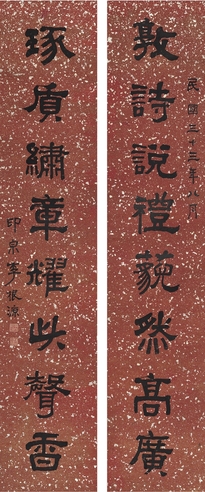 民國三十三年八月
敦詩說禮藐然高廣
琢質繡章耀此聲香
印泉李根源